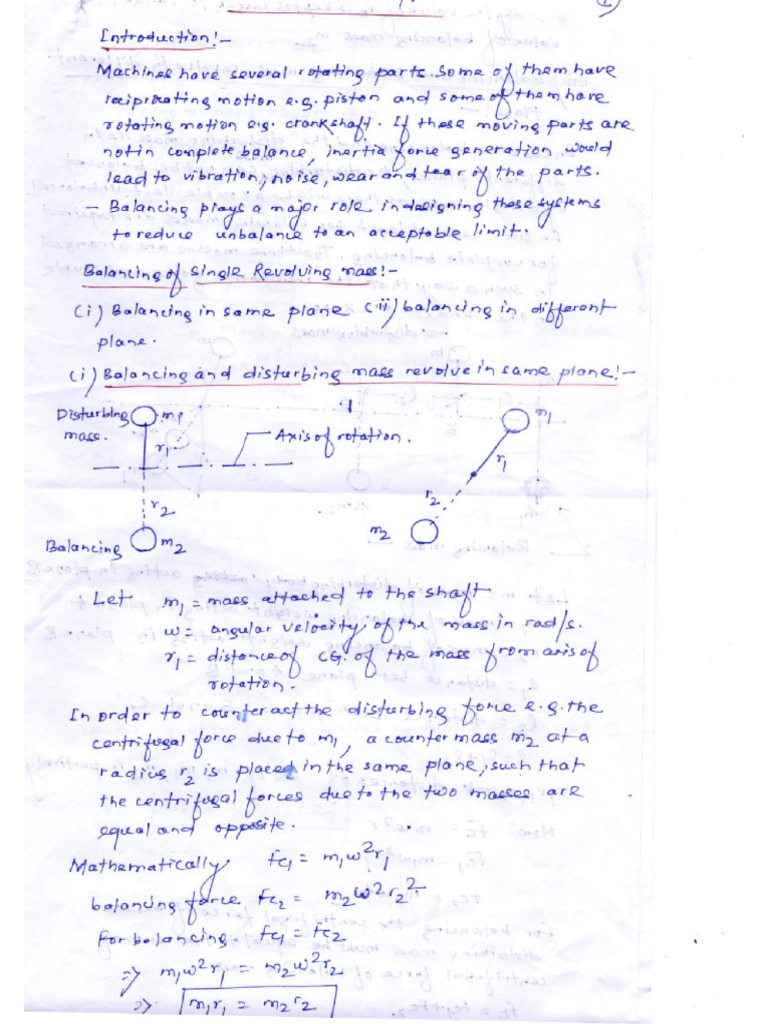 Introduction!-
Machines have several rotating parts. Some of them have
reciprocating motion e.g. piston and some of them have
rotating motion e.g. crankshaft. If these moving parts are
not in complete balance, inertia force generation would
lead to vibration, noise, wear and tear of the parts.
- Balancing plays a major role in designing these systems
to reduce unbalance to an acceptable limit.
Balancing of Single Revolving mass!-
(i) Balancing in same plane (ii) balancing in different
plane.
(i) Balancing and disturbing mass revolve in same plane!-
Disturbing m1
mass.
r1
Axis of rotation.
r2
Balancing m2
m1
r1
r2
m2
Let m1 = mass attached to the shaft
w = angular velocity of the mass in rad/s.
r1 = distance of CG. of the mass from axis of
rotation.
In order to counteract the disturbing force e.g. the
centrifugal force due to m1, a counter mass m2 at a
radius r2 is placed in the same plane, such that
the centrifugal forces due to the two masses are
equal and opposite.
Mathematically Fc1 = m1w²r1
balancing force Fc2 = m2w²r2²
For balancing Fc1 = Fc2
=> m1w²r1 = m2w²r2
=> m1r1 = m2r2